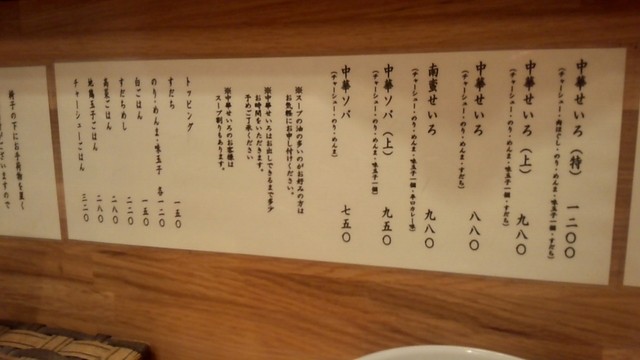 中華せいろ（特） 一二〇〇
（チャーシュー・肉ほぐし・のり・めんま・味玉子一個・すだち）
中華せいろ（上） 九八〇
（チャーシュー・のり・めんま・味玉子一個・すだち）
中華せいろ 八八〇
（チャーシュー・のり・めんま・すだち）
南蛮せいろ 九八〇
（チャーシュー・のり・めんま・味玉子一個・辛口カレー味）
中華ソバ（上） 九五〇
（チャーシュー・のり・めんま・味玉子一個）
中華ソバ 七五〇
（チャーシュー・のり・めんま）
※スープの油の多いのがお好みの方は
お気軽にお申し付けください。
※中華せいろはお出しできるまで多少
お時間をいただきます。
予めご了承ください
※中華せいろのお客様は
スープ割りもあります。
トッピング
すだち 一五〇
のり・めんま・味玉子 各一二〇
白ごはん 一五〇
すだちめし 二二〇
高菜ごはん 二八〇
地鶏玉子ごはん 二八〇
チャーシューごはん 三二〇
椅子の下にお手荷物を置く
ございますので